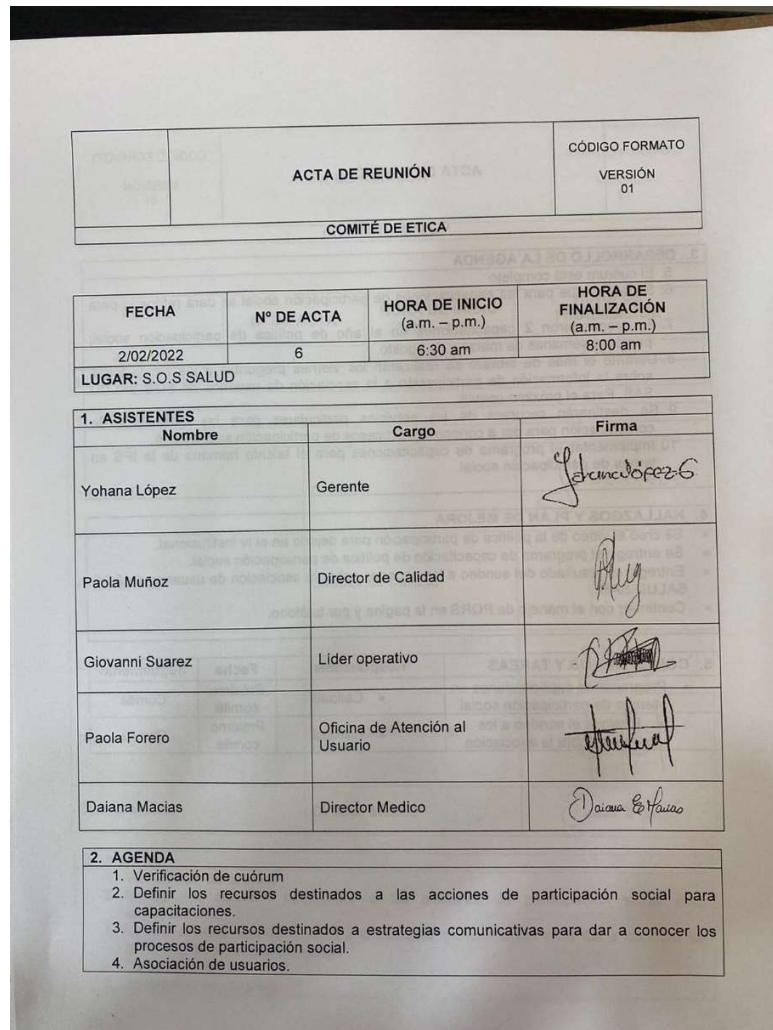 ACTA DE REUNIÓN
CÓDIGO FORMATO
VERSIÓN
01
COMITÉ DE ETICA
FECHA
Nº DE ACTA
HORA DE INICIO
(a.m. – p.m.)
HORA DE
FINALIZACIÓN
(a.m. – p.m.)
2/02/2022
6
6:30 am
8:00 am
LUGAR: S.O.S SALUD
1. ASISTENTES
Nombre
Cargo
Firma
Yohana López
Gerente
Paola Muñoz
Director de Calidad
Giovanni Suarez
Líder operativo
Paola Forero
Oficina de Atención al
Usuario
Daiana Macias
Director Medico
Daiana E Macias
2. AGENDA
1. Verificación de cuórum
2. Definir los recursos destinados a las acciones de participación social para
capacitaciones.
3. Definir los recursos destinados a estrategias comunicativas para dar a conocer los
procesos de participación social.
4. Asociación de usuarios.